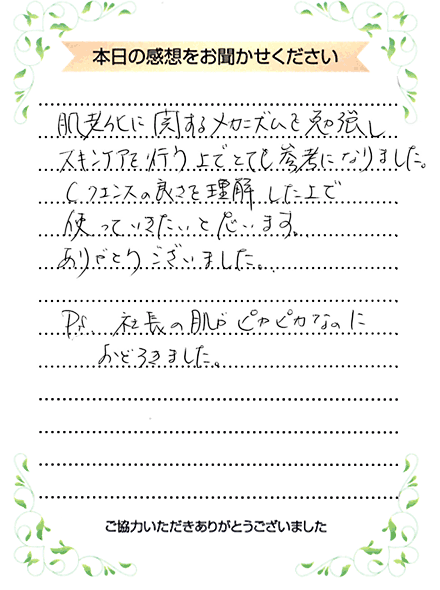 本日の感想をお聞かせください
肌老化に関するメカニズムを勉強し
スキンケアを行う上でとても参考になりました。
Cクエンスの良さを理解した上で
使っていきたいと思います。
ありがとうございました。
P.s. 社長の肌がピカピカなのに
おどろきました。
ご協力いただきありがとうございました